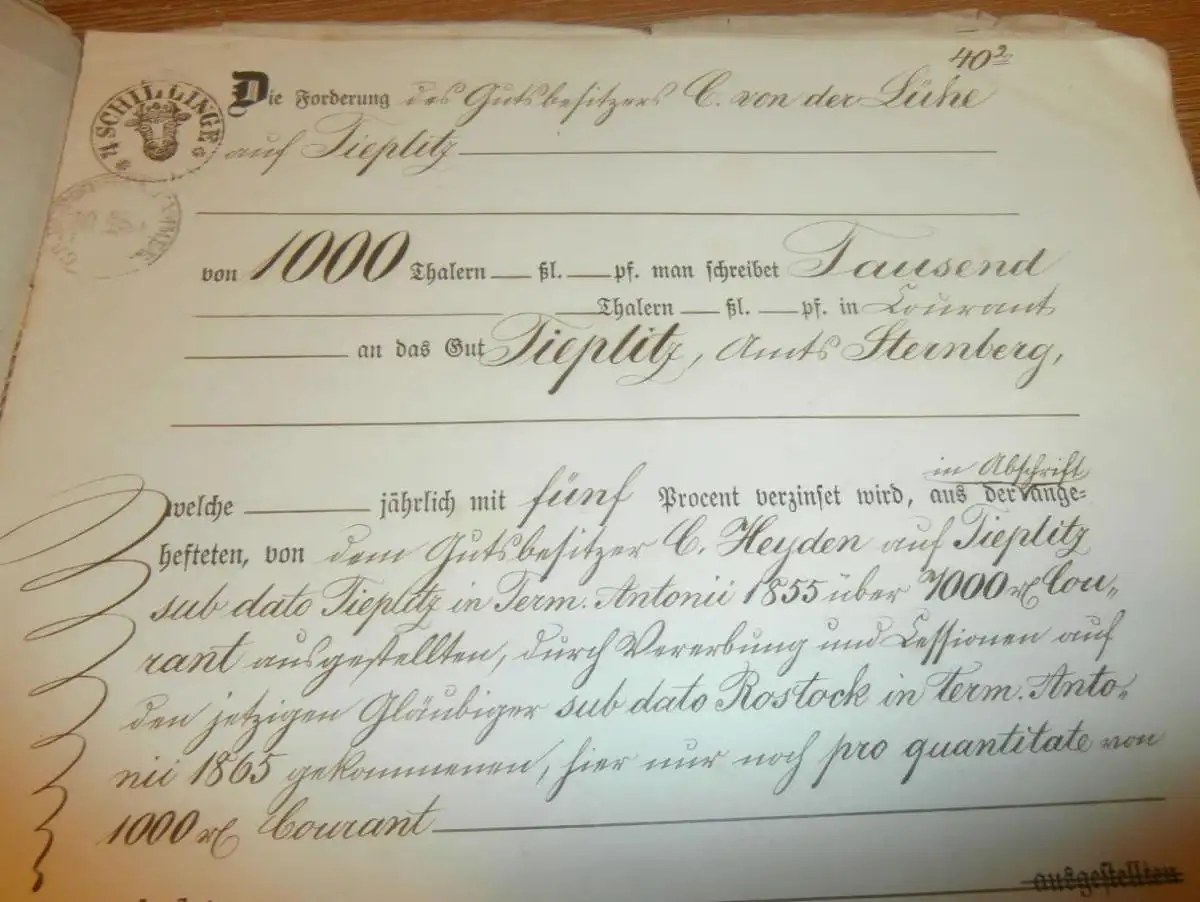 40²
4 SCHILLINGE
Die Forderung des Gutsbesitzers C. von der Lühe
auf Tieplitz
von 1000 Thalern — ßl. — pf. man schreibet Tausend
Thalern — ßl. — pf. in Courant
an das Gut Tieplitz, Amts Sternberg,
in Abschrift
welche jährlich mit fünf Procent verzinset wird, aus der ange-
hefteten, von dem Gutsbesitzer C. Heyden auf Tieplitz
sub dato Tieplitz in Term. Antonii 1855 über 7000 rℓ Cou-
rant ausgestellten, durch Vererbung und Cessionen auf
den jetzigen Gläubiger sub dato Rostock in term. Anto-
nii 1865 gekommenen, hier nur noch pro quantitate von
1000 rℓ Courant
ausgestellten